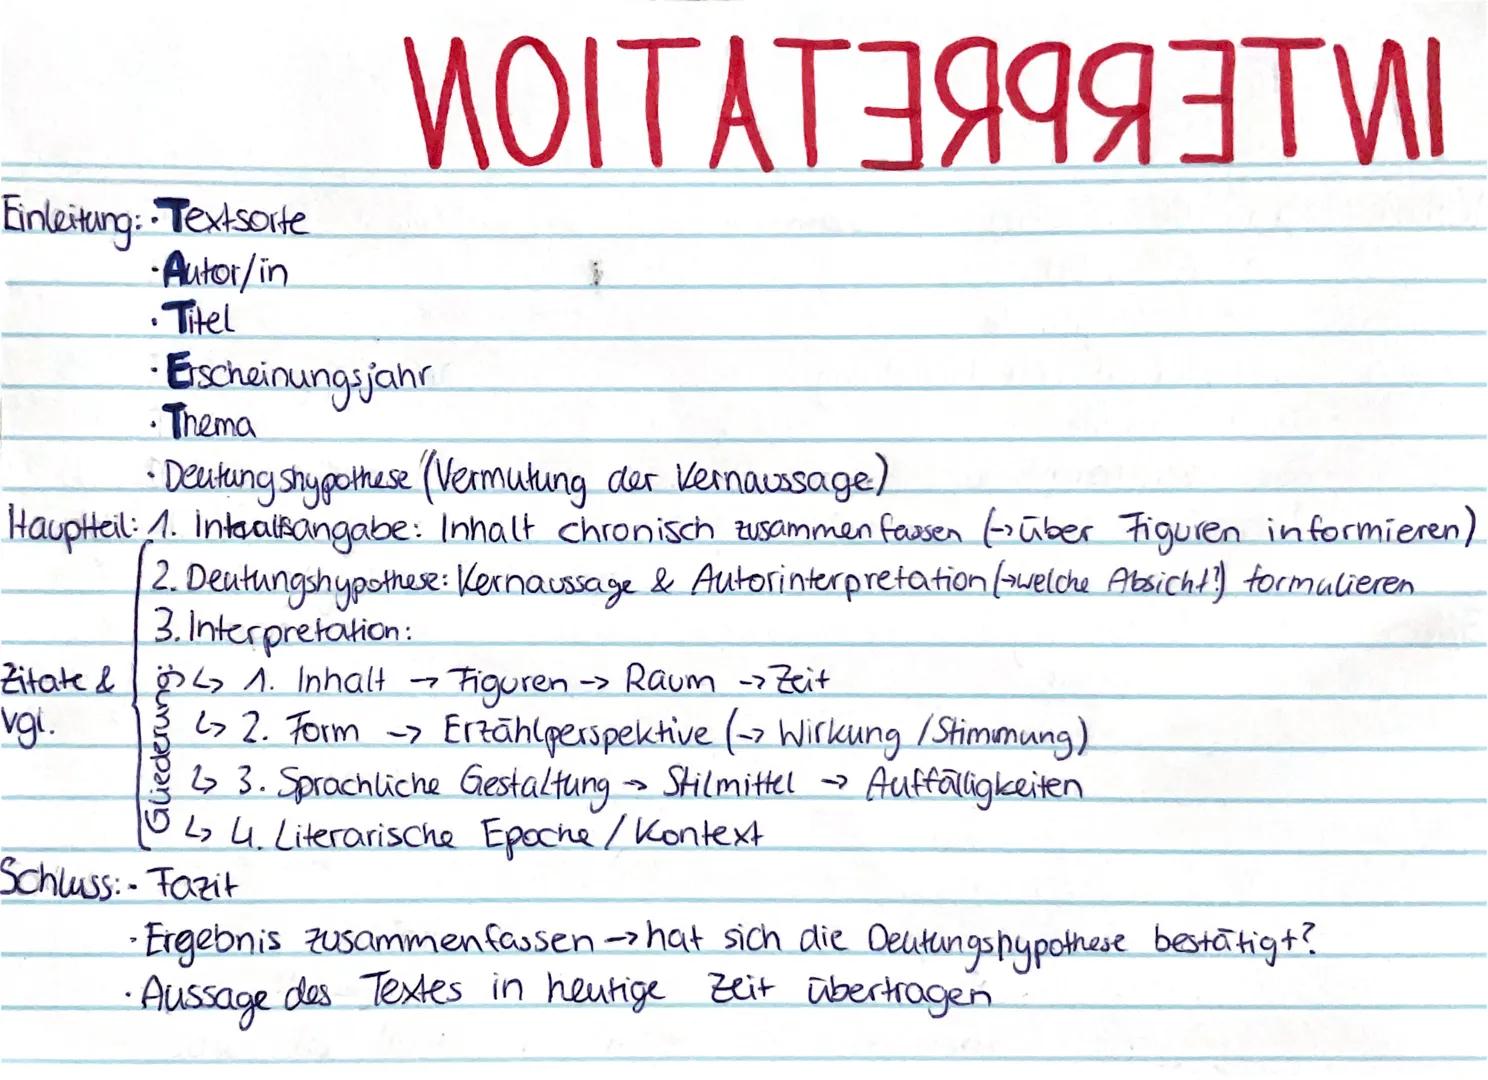 INTERPRETATION
Einleitung: · Textsorte
· Autor/in
· Titel
· Erscheinungsjahr
· Thema
· Deutungshypothese (Vermutung der Kernaussage)
Hauptteil: 1. Inhaltsangabe: Inhalt chronisch zusammenfassen (→ über Figuren informieren)
2. Deutungshypothese: Kernaussage & Autorinterpretation (→ welche Absicht?) formulieren
3. Interpretation:
Zitate & vgl.
Gliederung
↳ 1. Inhalt → Figuren → Raum → Zeit
↳ 2. Form → Erzählperspektive (→ Wirkung / Stimmung)
↳ 3. Sprachliche Gestaltung → Stilmittel → Auffälligkeiten
↳ 4. Literarische Epoche / Kontext
Schluss: · Fazit
· Ergebnis zusammenfassen → hat sich die Deutungshypothese bestätigt?
· Aussage des Textes in heutige Zeit übertragen